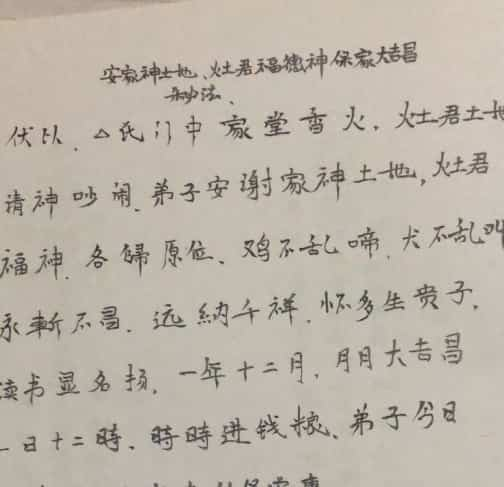 安家神土地、灶君福德神保家大吉昌
妙法、
伏以、△氏门中家堂香火、灶君土地
请神吵闹、弟子安谢家神土地,灶君
福神、各歸原位、鸡不乱啼、犬不乱叫
永斬不昌、远納千祥、怀多生贵子、
读书显名扬、一年十二月、月月大吉昌
一日十二時、時時进钱粮、弟子今日